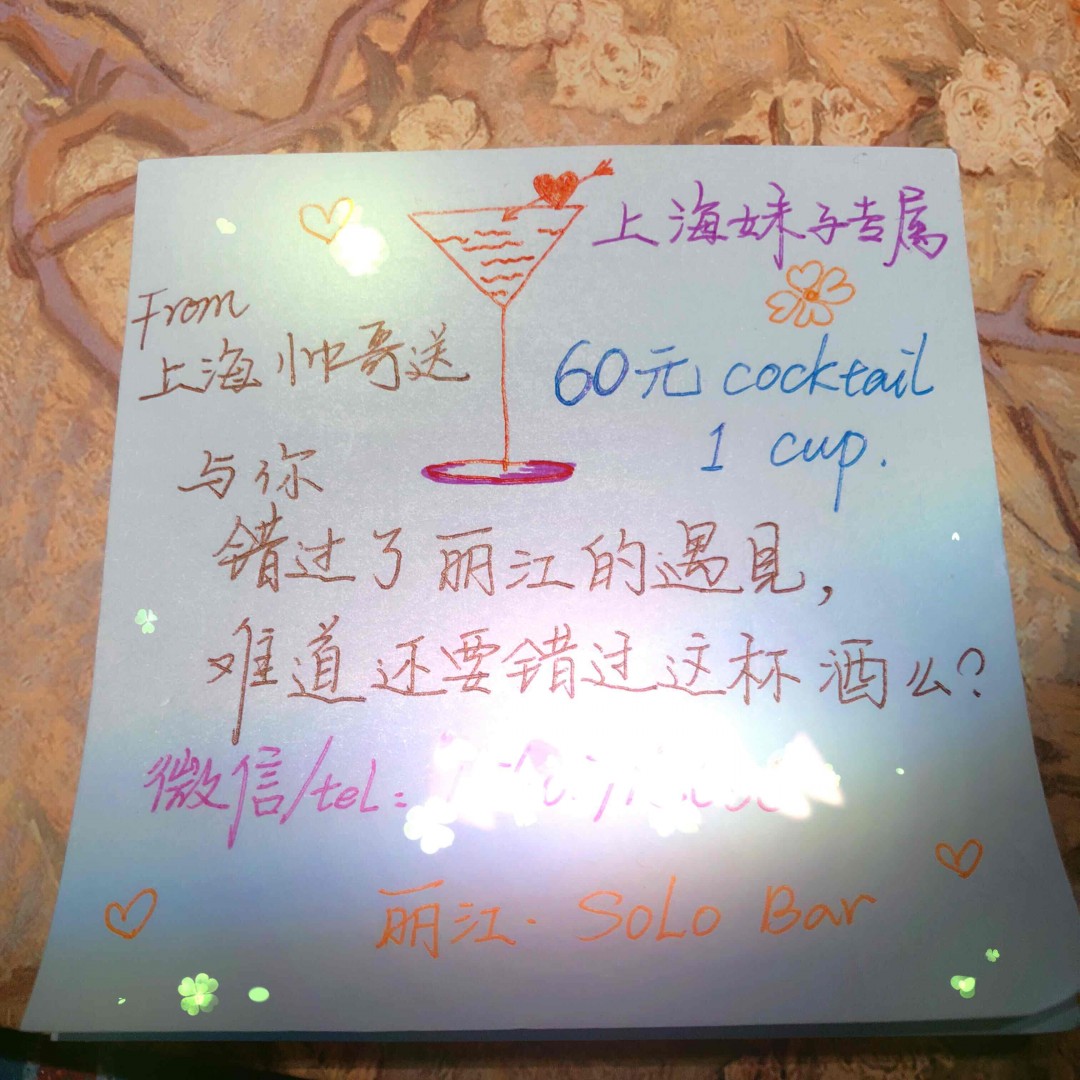 上海妹子专属
From
上海帅哥送
60元 cocktail
1 cup.
与你
错过了丽江的遇见,
难道还要错过这杯酒么?
微信/tel:
丽江·SoLo Bar